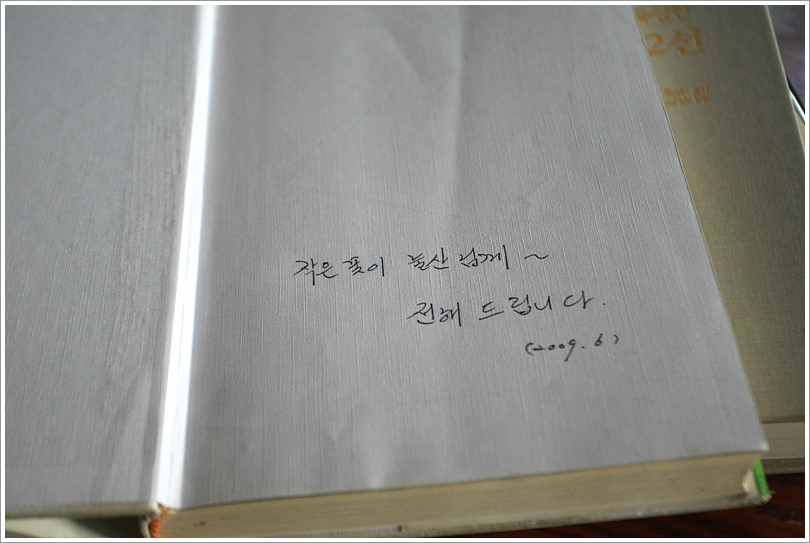 작은꽃이 눌산님께 ~
전해 드립니다.
(2009. 6)
2선